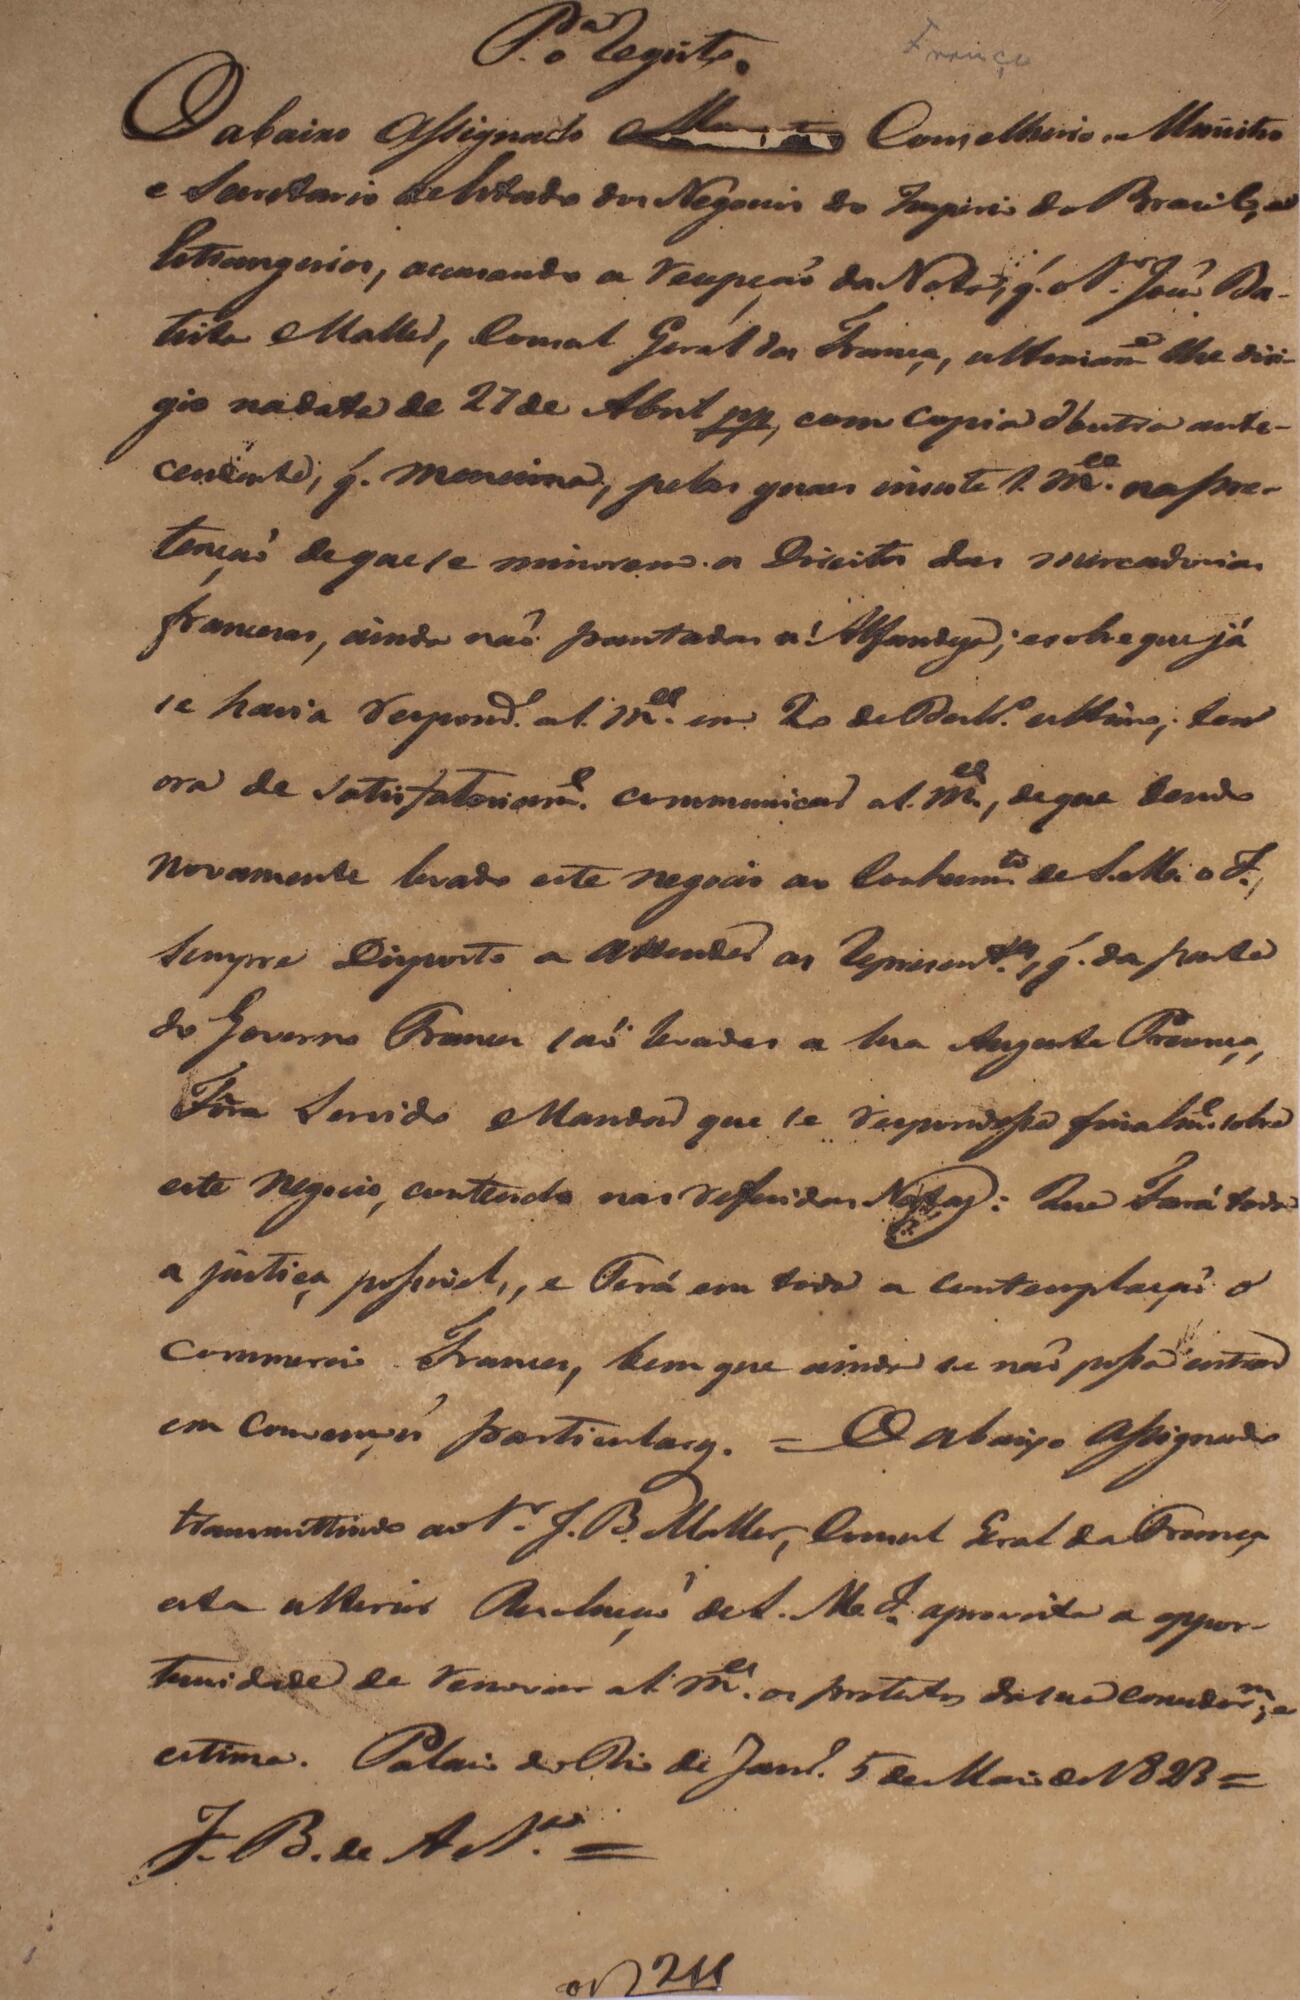 P.ª o Registo.
França
O abaixo Assignado Conselheiro Ministro
e Secretario de Estado dos Negocios do Imperio do Brasil, e
Estrangeiros, accusando a recepção da Nota, q̃. o S.r João Ba-
tista Maller, Consul Geral da França, ultimam.e lhe diri-
gio na data de 27 de Abril pp, com copia d'outra ante-
cedente, q̃. menciona, pelas quaes insiste S. M.ce na pre-
tenção de que se minorem os Direitos das mercadorias
francezas, ainda não pautadas n'Alfandega; e sobre que já
se havia respond.o a S. M.ce em 20 de ultimo; tem
ora de satisfatoriam.e communicar a S. M.ce, de que tendo
novamente levado este negocio ao Conhecim.to de S. M. o I.,
sempre Disposto a attender as represent.es, q̃. da parte
do Governo Francez são levadas a Sua Augusta Presença,
Fôra Servido Mandar que se respondesse finalm.e sobre
este negocio, contendo nas referidas Notas: Que Fará toda
a justiça possivel, e Terá em toda a contemplação o
commercio Francez, bem que ainda se não possa entrar
em Convenções particulares. = O abaixo Assignado
transmittindo ao S.r J. B. Maller, Consul Geral da França
esta ulterior Resolução de S. M. I. aproveita a oppor-
tunidade de renovar a S. M.ce os protestos da sua consideram, e
estima. Palacio do Rio de Jan.o 5 de Maio de 1823 =
J. B. de A e S.a =
211